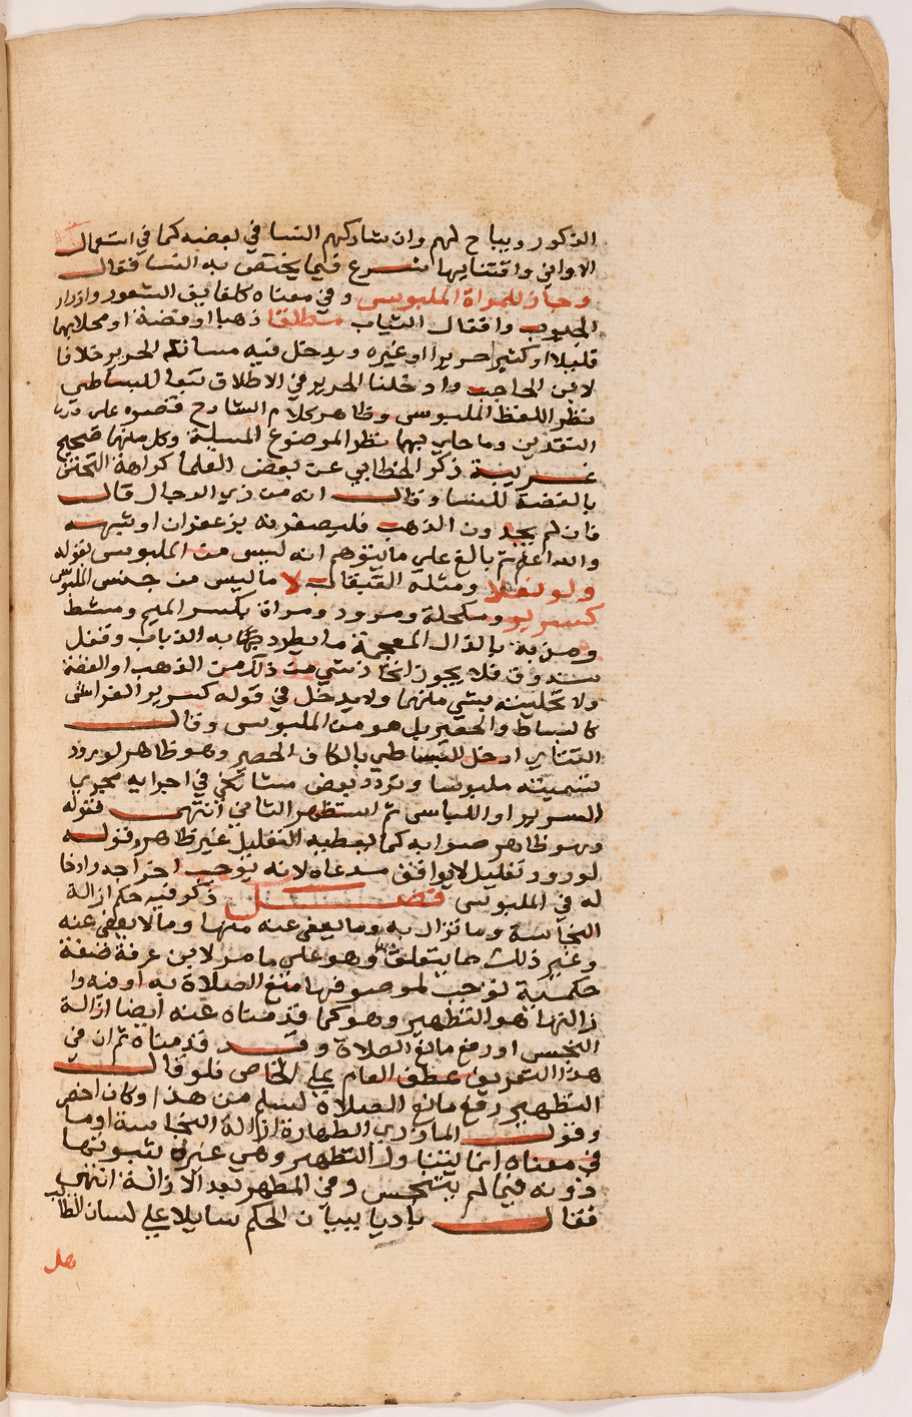 الذكور ويباح لهم وان شاركهم النسا في بعضه كما في استعمال
الاواني واقتنايها شرع فيما يختص به النسا فقال
وجاز للمراة الملبوس وفي معناه كلفايف الشعور وازرار
الجيوب واقفال الثياب مطلقا ذهبا او فضة او محلابهما
قليلا او كثيرا حريرا او غيره ويدخل فيه مساند الحرير خلافا
لابن الحاجب وادخلنا الحرير في الاطلاق تبعا للبساطي
نظر اللفظ الملبوس وظاهر كلام الشارح قصره على
النقدين وما حلي بهما نظر الموضوع المسيلة وكل منهما صحيح
غريبة ذكر الخطابي عن بعض العلما كراهة التختم
بالفضة للنسا وقال انه من زي الرجال قال
فان لم يجدون الذهب فليصفرنه بزعفران او شبهه
والله اعلم ثم بالغ على ما يتوهم انه ليس من الملبوس بقوله
ولو نعلا ومثله القبقاب لا ما ليس من جنس الملبوس
كسرير ومكحلة ومرود ومراة بكسر الميم ومشط
ومذبة بالذال المعجمة ما يطرد بها به الذباب وقفل
صندوق فلا يجوز اتخاذ شي من ذلك من الذهب او الفضة
ولا تحليته بشي منهما ولا يدخل في قوله كسرير الفراش
كالبساط والحصير بل هو من الملبوس وقال
التتاي ادخل البساطي بالكاف الحصير وهو ظاهر لورود
تسميته ملبوسا وتردد بعض مشايخي في اجرايه مجرى
السرير او اللباس ثم استظهر الثاني انتهى فقوله
وهو ظاهر صوابه كما يعطيه التعليل غير ظاهر وقوله
لورود تعليل لا يوافق مدعاه لانه يوجب اخراجه وادخا
له في الملبوس فصل ذكر فيه حكم ازالة
النجاسة وما تزال به وما يعفى عنه منها وما لا يعفى عنه
وغير ذلك مما يتعلق وهو على ما مر لابن عرفة صفة
حكمية توجب لموصوفها منع الصلاة به او فيه وا
زالتها هو التطهير وهو كما قدمناه عنه ايضا ازالة
النجس او رفع مانع الصلاة وقد قدمناه ثم ان في
هذا التعريف عطف العام على الخاص فلو قال
التطهير رفع مانع الصلاة لسلم من هذا وكان اخصر
وقول الماوردي الطهارة ازالة النجاسة او ما
في معناه انما يتناول التطهير وهي غيره لثبوتها
دونه فيما لم يتنجس وفي المطهر بعد الازالة انتهى
فقال باديا ببيان الحكم سايلا على لسان الطالب
هل